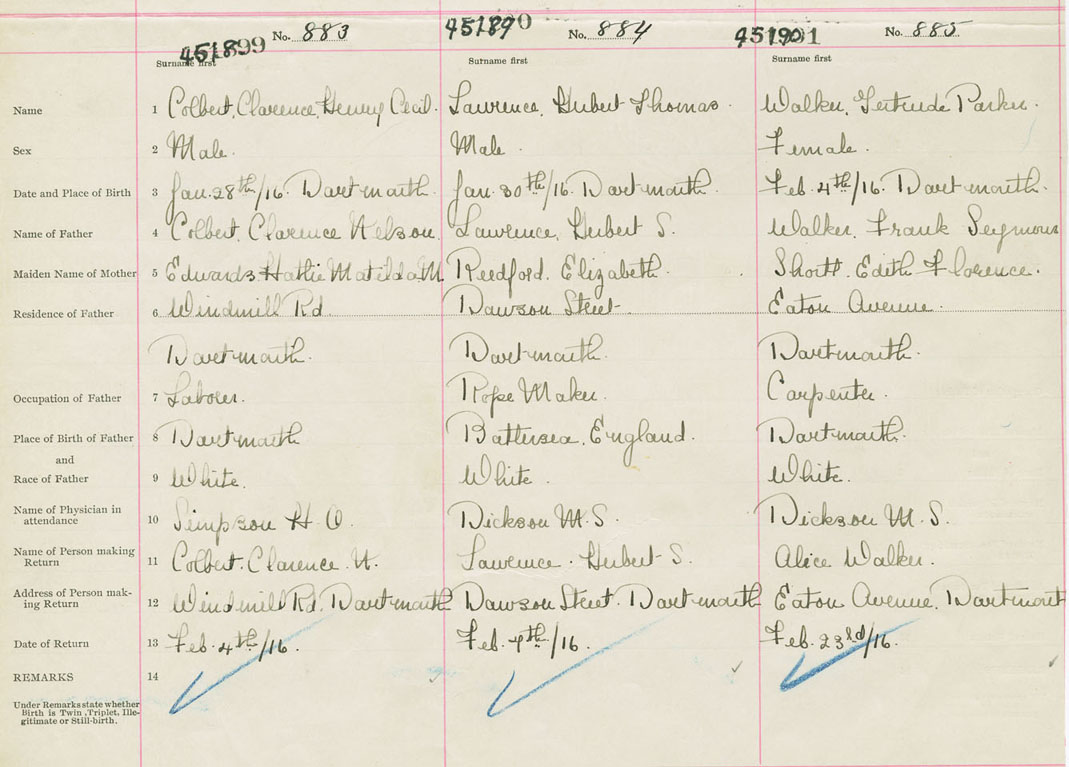 451899 No. 883 451890 No. 884 451901 No. 885
Surname first Surname first Surname first
Name 1 Colbert, Clarence, Henry Cecil. Lawrence, Hubert Thomas. Walker, Gertrude Parker.
Sex 2 Male. Male. Female.
Date and Place of Birth 3 Jan. 28th/16. Dartmouth. Jan. 30th/16. Dartmouth. Feb. 4th/16. Dartmouth.
Name of Father 4 Colbert, Clarence Nelson. Lawrence, Hubert S. Walker, Frank Seymour
Maiden Name of Mother 5 Edwards Hattie Matilda M Reedford. Elizabeth. Shortt. Edith Florence.
Residence of Father 6 Windmill Rd Dawson Street Eaton Avenue.
Dartmouth. Dartmouth. Dartmouth.
Occupation of Father 7 Laborer. Rope Maker. Carpenter.
Place of Birth of Father 8 Dartmouth Battersea, England. Dartmouth.
and
Race of Father 9 White. White. White.
Name of Physician in
attendance 10 Simpson H. O. Dickson M. S. Dickson M. S.
Name of Person making
Return 11 Colbert. Clarence. N. Lawrence. Hubert S. Alice Walker.
Address of Person mak-
ing Return 12 Windmill Rd. Dartmouth Dawson Street. Dartmouth Eaton Avenue. Dartmout
Date of Return 13 Feb. 4th/16. Feb. 4th/16. Feb. 23rd/16.
REMARKS 14
Under Remarks state whether
Birth is Twin, Triplet, Ille-
gitimate or Still-birth.